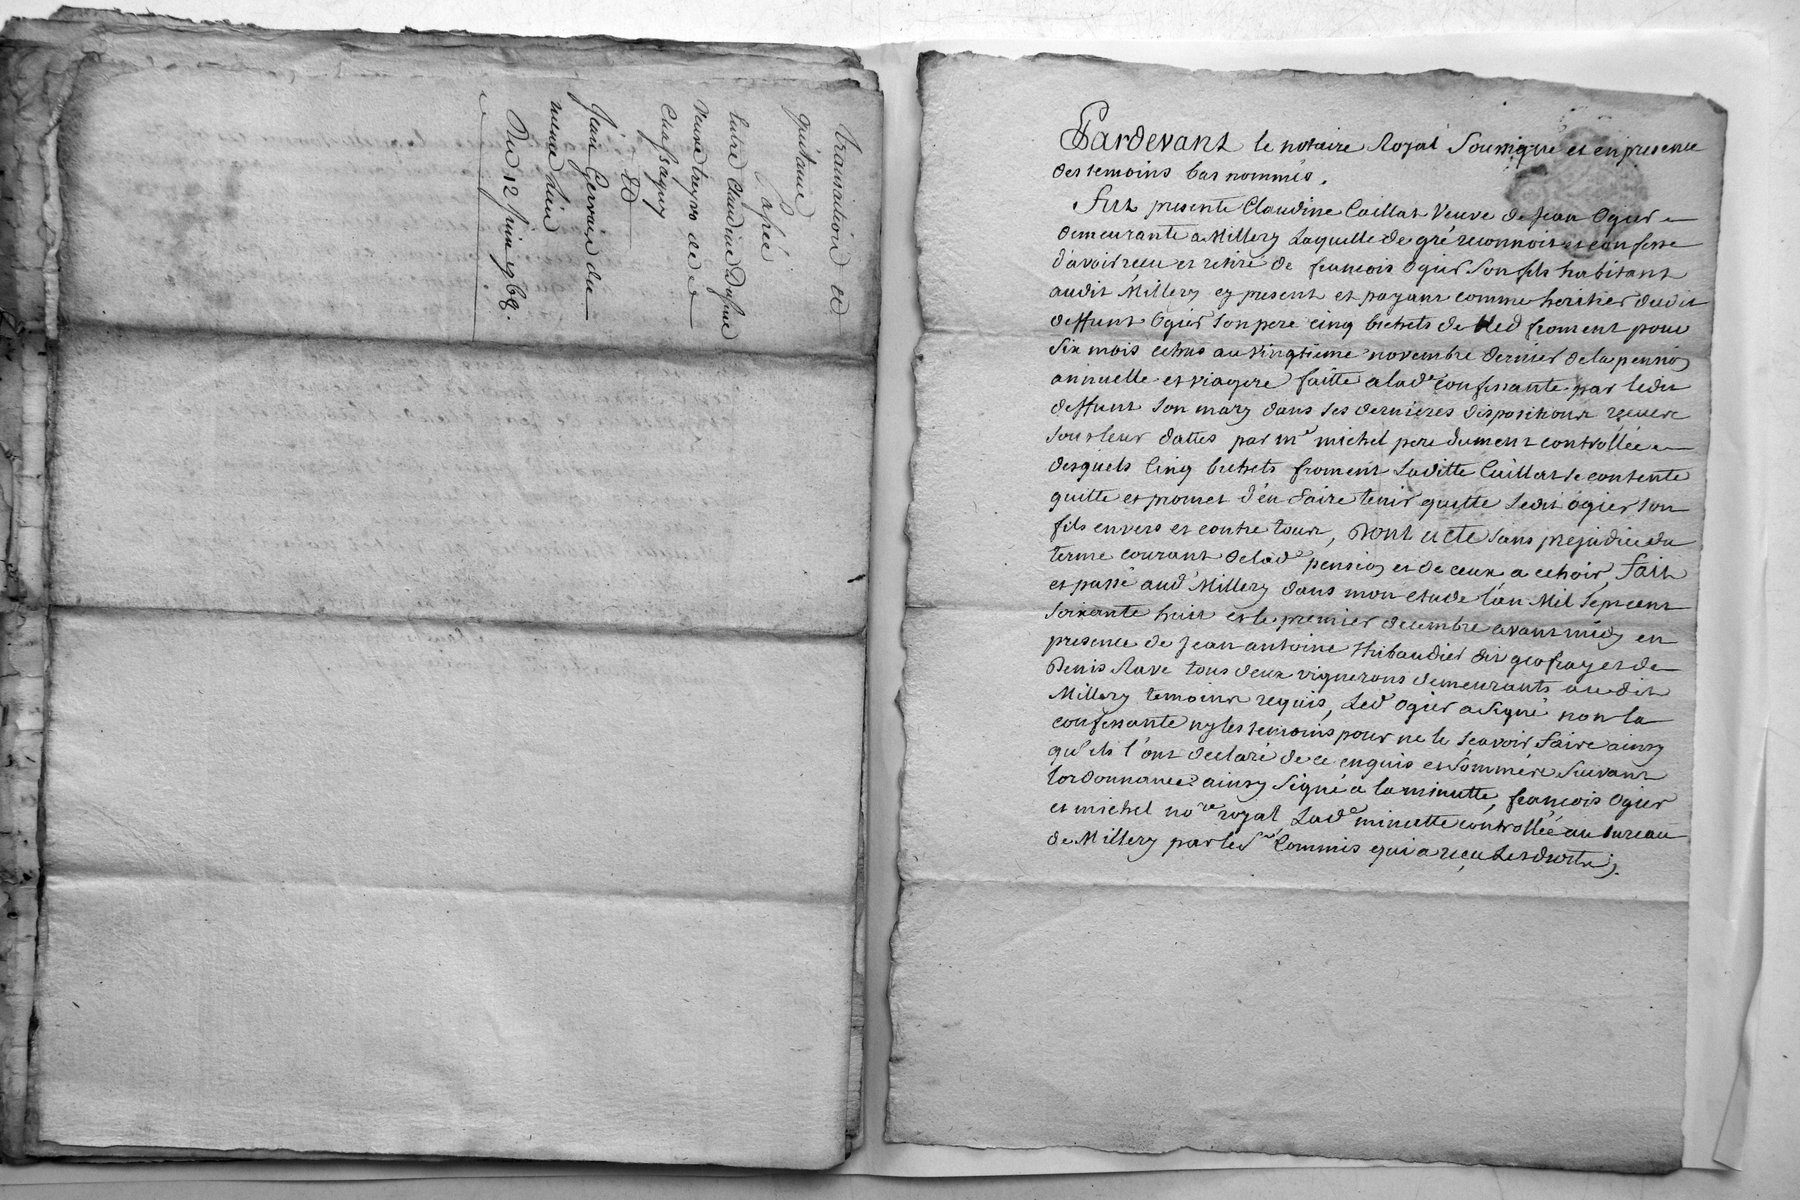 transaction et
quittance
Copiée
Entre Claudine Dufine
Veuve treyvo de
Chassagny
Et
Jean Gervais du
meme lieu
Du 12 Juin 1768.
Pardevant le notaire Royal Soussigné et en presence
des temoins bas nommés.
Fut presente Claudine Caillat Veuve de Jean Ogier
demeurante a Millery Laquelle de gré reconnoit et confesse
d'avoir reçu et retiré de francois Ogier Son fils habitant
audit Millery cy present et payant comme heritier dudit
deffunt Ogier Son pere cinq bichets de bled froment pour
Six mois echus au vingtieme novembre dernier de la pension
annuelle et viagere faitte a lad.e confessante par ledit
deffunt Son mary dans ses dernieres dispositions receues
Sous leur dattes par m.e michel pere dument controllée
desquels Cinq bichets froment Laditte Caillat se contente
quitte et promet d'en faire tenir quitte Ledit ogier son
fils envers et contre tous, Dont acte Sans prejudice du
terme courant de lad.e pension et de ceux a echoir, fait
et passé aud.t Millery dans mon etude l'an Mil Sept cent
Soixante huit et le premier decembre avant midy en
presence de Jean antoine Thibaudier dit geofray et de
Denis Rave tous deux vignerons demeurants audit
Millery temoins requis, Led.t Ogier a Signé non la
confessante ny les temoins pour ne le sçavoir faire ainsy
qu'ils l'ont declaré de ce enquis et Sommés Suivant
l'ordonnance ainsy Signé a la minutte, francois Ogier
et michel no.re royal Lad.e minutte controllée au bureau
de Millery par le S.r Commis qui a reçu Les droits.